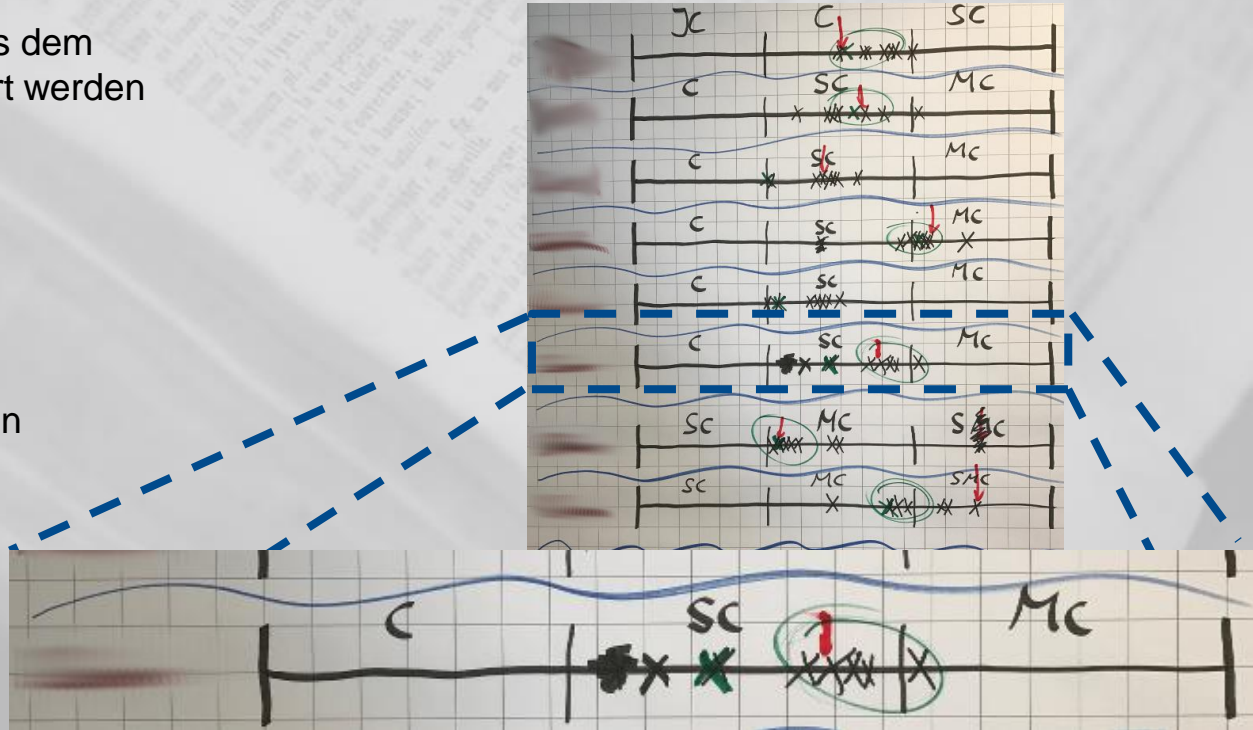 s dem
rt werden
n
JC C SC
C SC MC
C SC MC
C SC MC
C SC MC
C SC MC
SC MC SMC
SC MC SMC
C SC MC